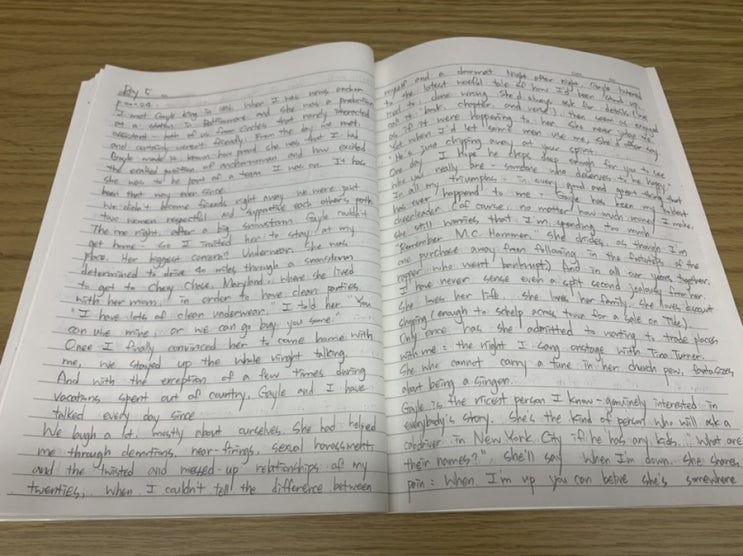 Day 5
I met Gayle King in 1976 when I was news anchor
at a station in Baltimore and she was a production
assistant - both of us from circles that rarely interacted
and certainly weren't friendly. From the day we met,
Gayle made it known how proud she was that I had
the exalted position of anchorwoman and how excited
she was to be part of a team I was on. It has
been that way ever since.
We didn't become friends right away - we were just
two women respectful and supportive each other's path
The one night, after a big snowstorm, Gayle couldn't
get home - so I invited her to stay at my
place. Her biggest concern? Underwear. She was
determined to drive 40 miles through a snowstorm
to get to Chevy Chase, Maryland, where she lived
with her mom, in order to have clean panties,
"I have lots of clean underwear," I told her "You
can use mine, or we can go buy you some."
Once I finally convinced her to come home with
me, we stayed up the whole night talking.
And with the exception of a few times during
vacations spent out of country, Gayle and I have
talked every day since
We laugh a lot, mostly about ourselves. She had helped
me through demotions, near-firings, sexual harassment,
and the twisted and messed-up relationships of my
twenties, when I couldn't tell the difference between
myself and a doormat. Night after night, Gayle listened
to the latest woeful tale of how I'd been stood up,
lied to, done wrong. She'd always ask for details (we
call it "book, chapter, and verse"), then seem as engaged
as if it were happening to her. She never judge me.
Yet when I'd let some man use me, she'd often say
"He is just chipping away at your spirit.
One day I hope he chips deep enough for you to see
who you really are - someone who deserves to be happy."
In all my triumphs - in every good and great thing that
has ever happend to me - Gayle has been my boldest
cheerleader (Of course, no matter how much money I make,
she still worries that I'm spending too much.
"Remember M.C. Hammer," she chides, as though I'm
one purchase away from following in the footsteps of the
rapper who went bankrupt) And in all our years together,
I have never sense even a split second jealously from her.
She loves her life, she loves her family, she loves discount
shopping (enough to schelp across town for a sale on Tide)
Only once has she admitted to wanting to trade places
with me: the night I sang onstage with Tina Turner.
She who cannot carry a tune in her church pew, fantasizes
about being a singer.
Gayle is the nicest person I know - genuinely interested in
everybody's story. She's the kind of person who will ask a
cabdriver in New York City if he has any kids. "What are
their names?" she'll say When I'm down, she shares
pain: When I'm up you can belive she's somewhere